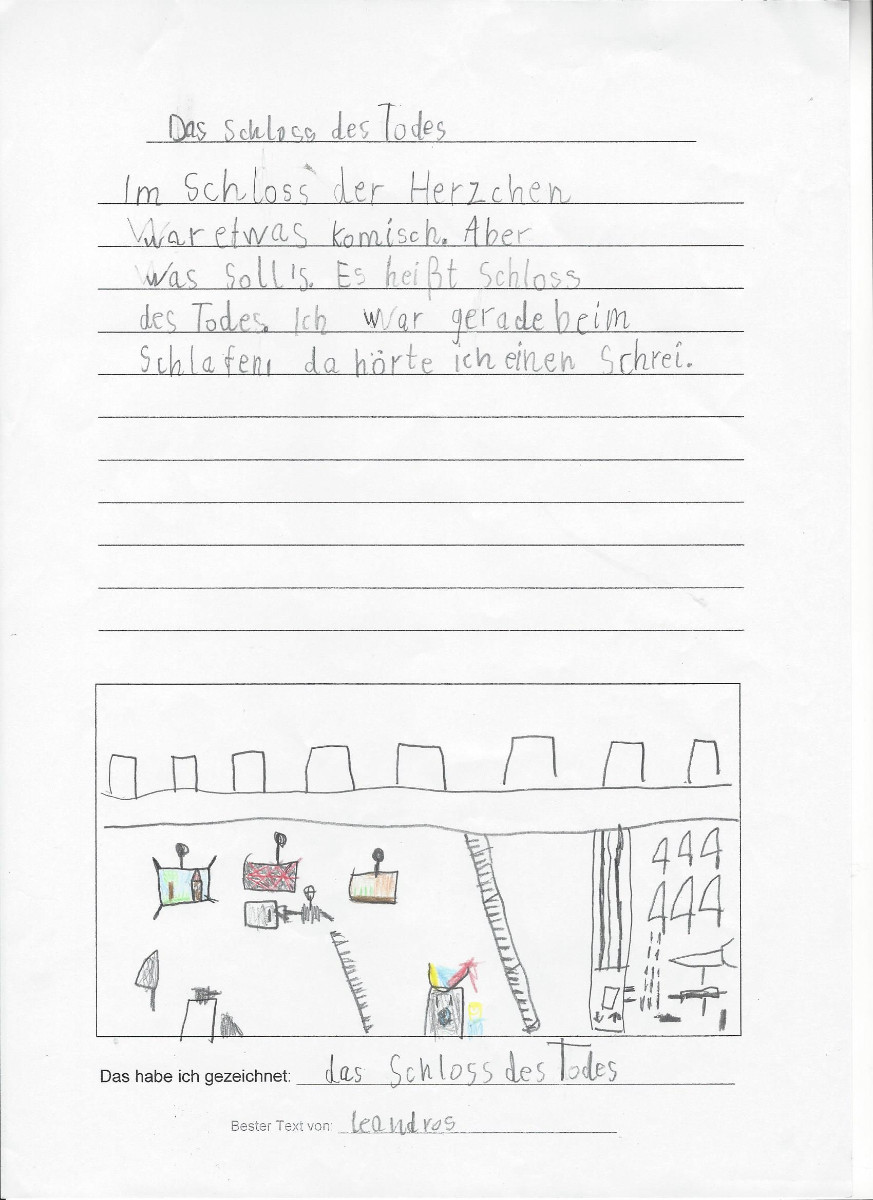 Das Schloss des Todes
Im Schloss der Herzchen
War etwas komisch. Aber
was Soll's. Es heißt Schloss
des Todes. Ich war gerade beim
Schlafen, da hörte ich einen Schrei.
Das habe ich gezeichnet: das Schloss des Todes
Bester Text von: leandros